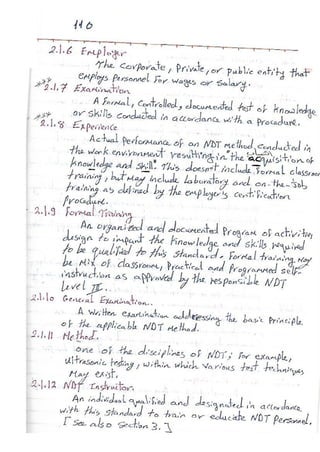 110
2.1.6 Employer
The corporate, private, or public entity that
employs personnel for wages or salary.
2.1.7 Examination
A formal, controlled, documented test of knowledge
or skills conducted in accordance with a procedure.
2.1.8 Experience
Actual performance of an NDT method conducted in
the work environment resulting in "the acquisition of
knowledge and skill". This doesn't include formal classroom
training, but may include laboratory and on-the-job
training as defined by the employer's certification
procedure.
2.1.9 Formal Training
An organized and documented program of activities
design to impart the knowledge and skills required
to be qualified to this standard. Formal training may
be mix of classroom, practical and programmed self-
instruction as approved by the responsible NDT
Level III.
2.1.10 General Examination.
A written examination addressing the basic principle
of the applicable NDT method.
2.1.11 Method.
one of the disciplines of NDT; for example,
ultrasonic testing, within which various test techniques
may exist.
2.1.12 NDT Instructor.
An individual qualified and designated in accordance
with this standard to train or educate NDT personnel.
[See also section 3.]